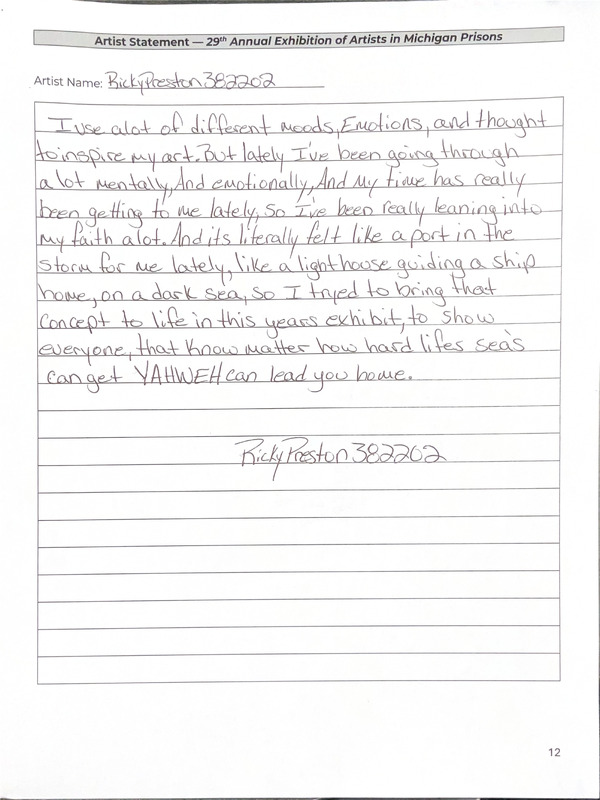 Artist Statement — 29th Annual Exhibition of Artists in Michigan Prisons
Artist Name: Ricky Preston 382202
I use alot of different moods, Emotions, and thought
to inspire my art. But lately I've been going through
a lot mentally, And emotionally, And My time has really
been getting to me lately, so I've been really leaning into
my faith alot. And its literally felt like a port in the
storm for me lately, like a lighthouse guiding a ship
home, on a dark sea, so I tryed to bring that
concept to life in this years exhibit, to show
everyone, that know matter how hard lifes sea's
can get YAHWEH can lead you home.
Ricky Preston 382202
12